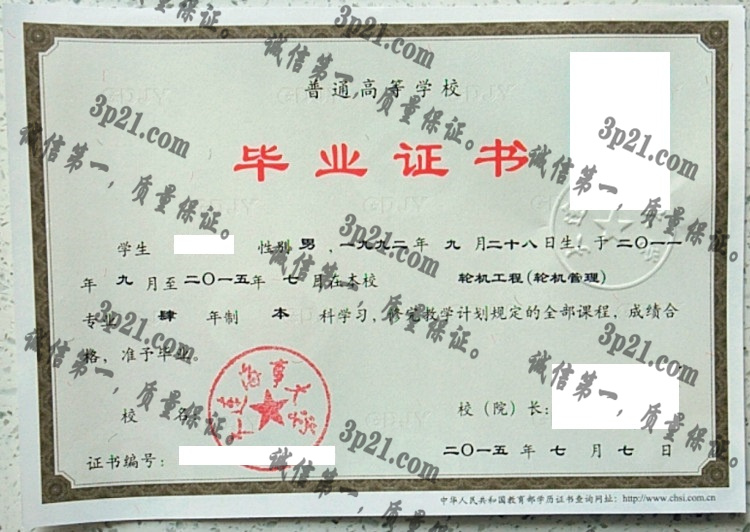 普通高等学校
毕业证书
学生 性别 男 ，一九九二年 九 月二十八日生，于二〇一一
年 九 月至二〇一五年 七 月在本校 轮机工程(轮机管理)
专业 肆 年制 本 科学习，修完教学计划规定的全部课程，成绩合
格，准予毕业。
校 名： 校（院）长：
大连海事大学
证书编号： 二〇一五 年 七 月 七 日
中华人民共和国教育部学历证书查询网址：http://www.chsi.com.cn
3p21.com
诚信第一，质量保证。
3p21.com
诚信第一，质量保证。
3p21.com
诚信第一，质量保证。
3p21.com
诚信第一，质量保证。
3p21.com
诚信第一，质量保证。
3p21.com
诚信第一，质量保证。
3p21.com
诚信第一，质量保证。
3p21.com
诚信第一，质量保证。